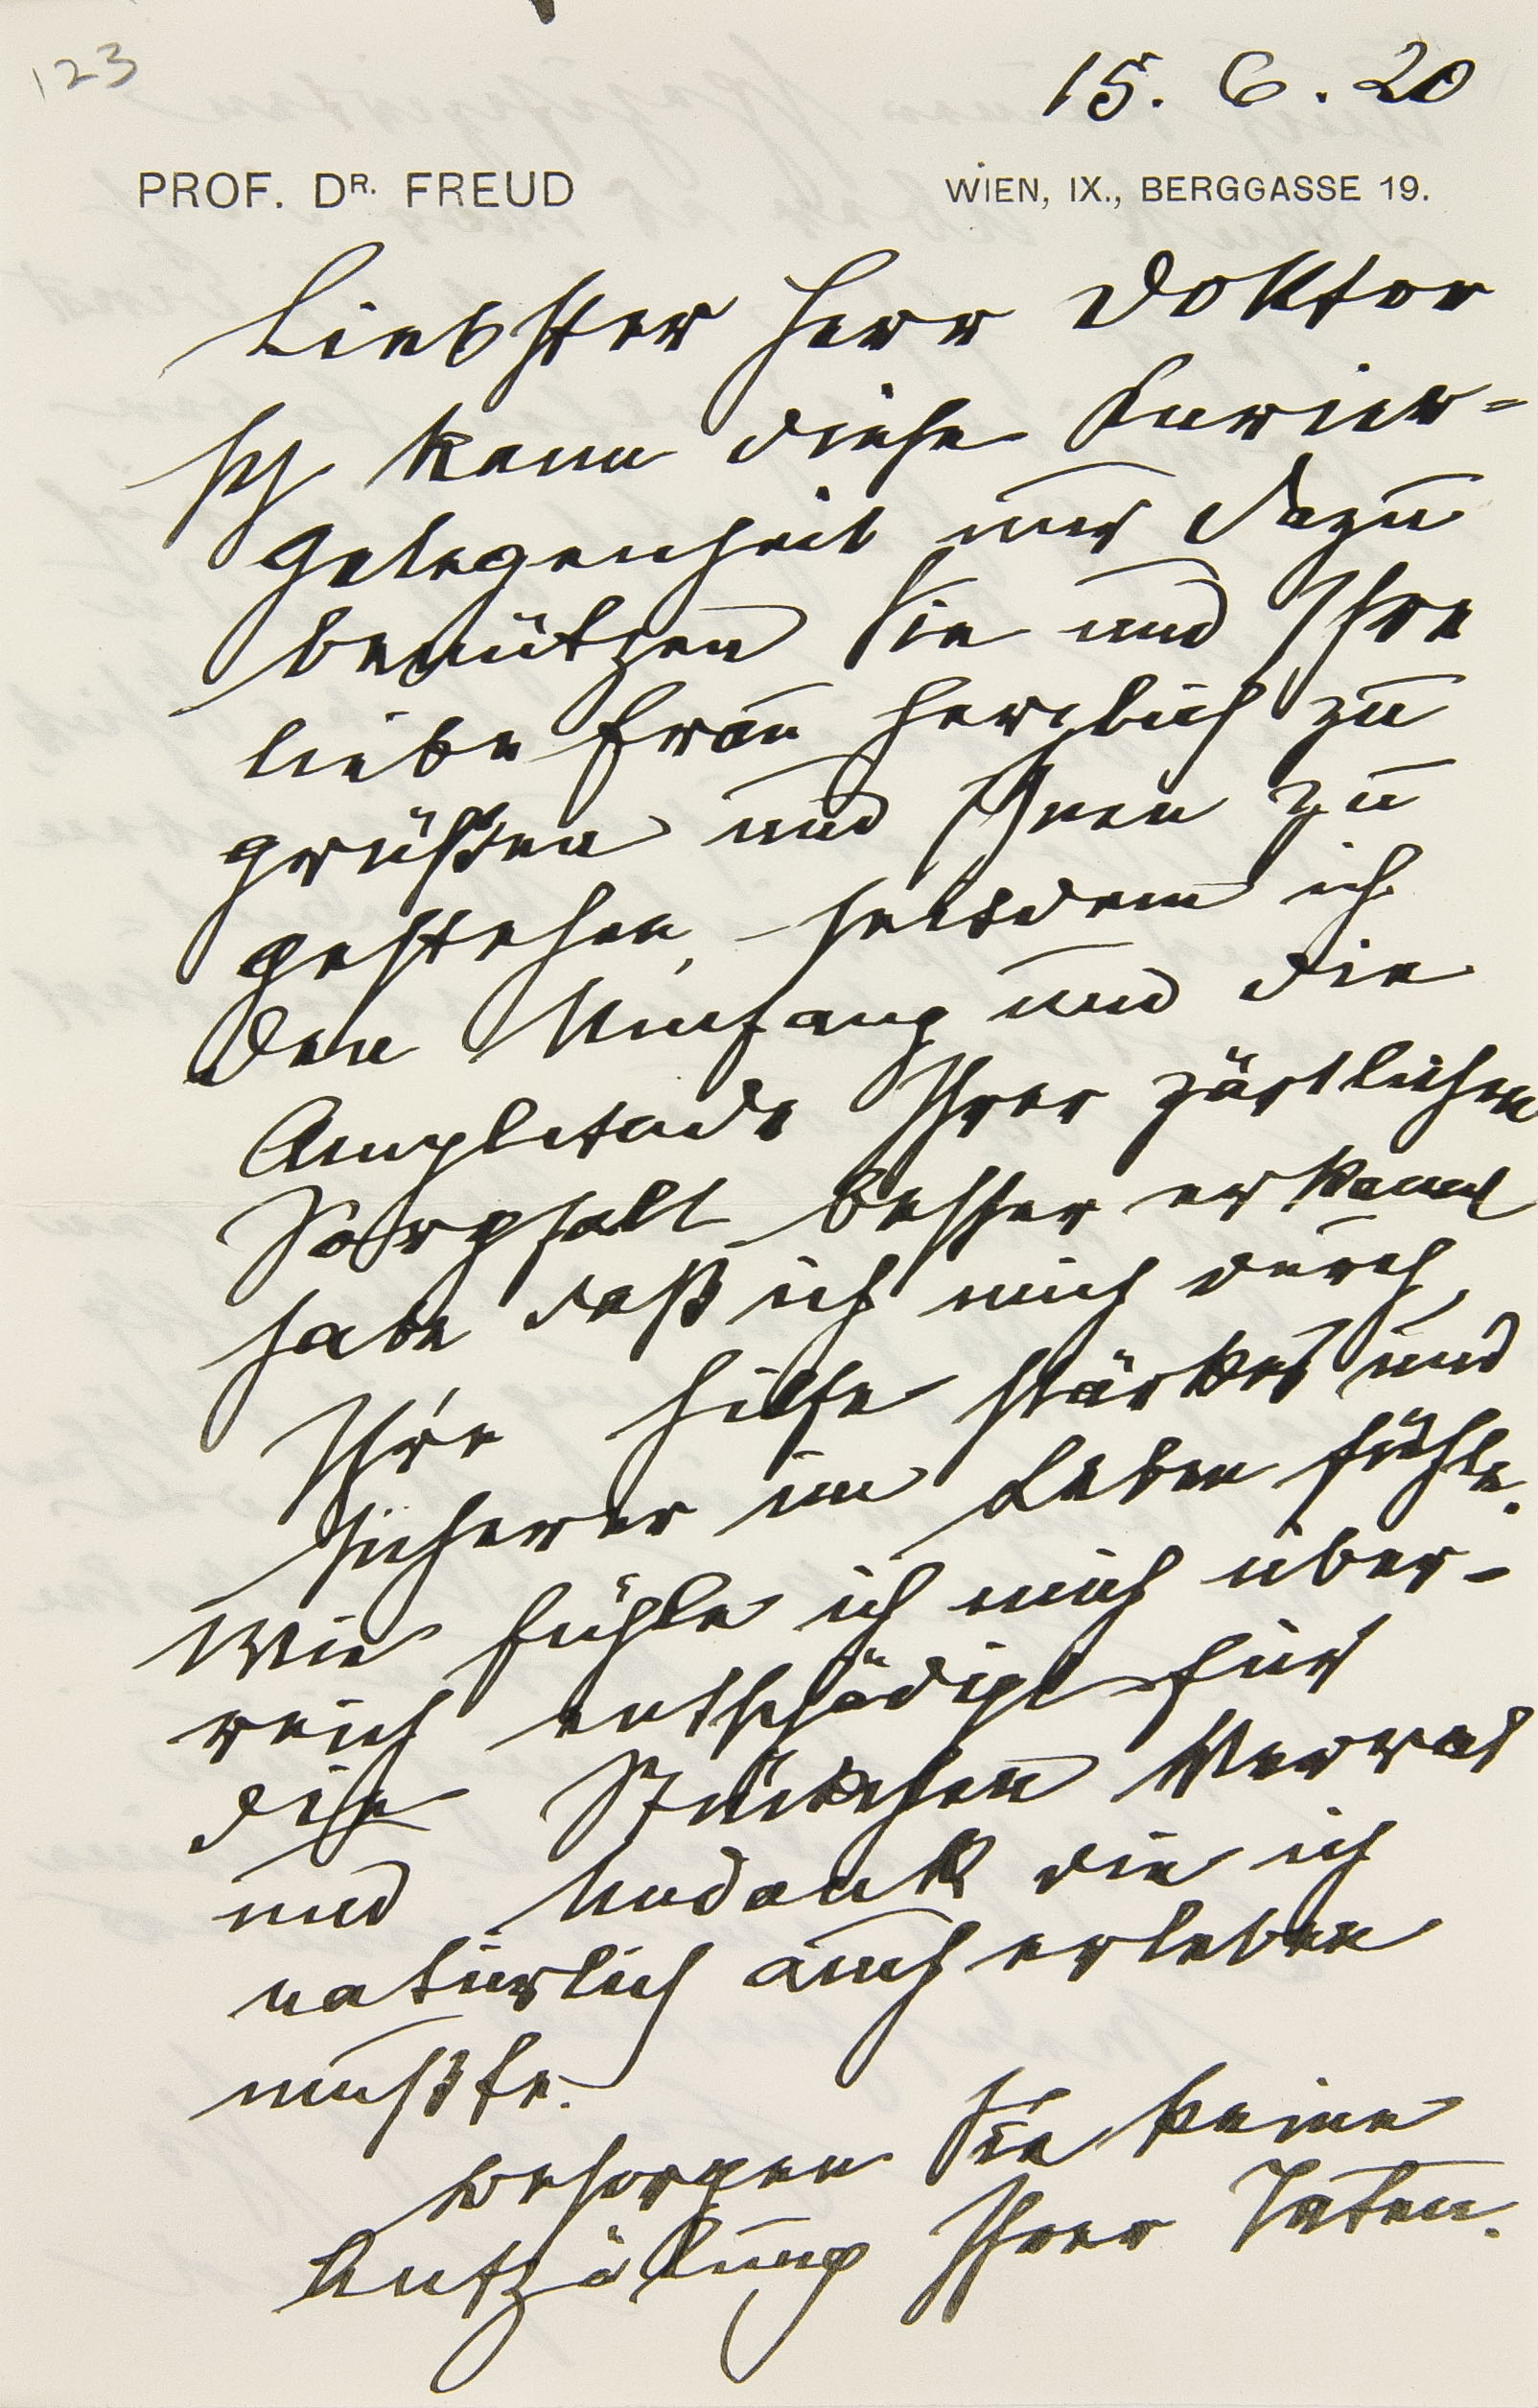 123
15. 6. 20
PROF. DR. FREUD WIEN, IX., BERGGASSE 19.
Liebster Herr Doktor
Ich kann diese Kurier-
gelegenheit nur dazu
benützen Sie und Ihre
liebe Frau herzlich zu
grüßen und Ihnen zu
gestehen, seitdem ich
den Umfang und die
Amplitude Ihrer zärtlichen
Sorgfalt besser erkannt
habe daß ich mich durch
Ihre Hilfe stärker und
sicherer im Leben fühle.
Wie fühle ich mich über-
reich entschädigt für
die Stückchen Verrat
und Undank die ich
natürlich auch erleben
mußte.
besorgen Sie keine
Aufzälung Ihrer Taten.